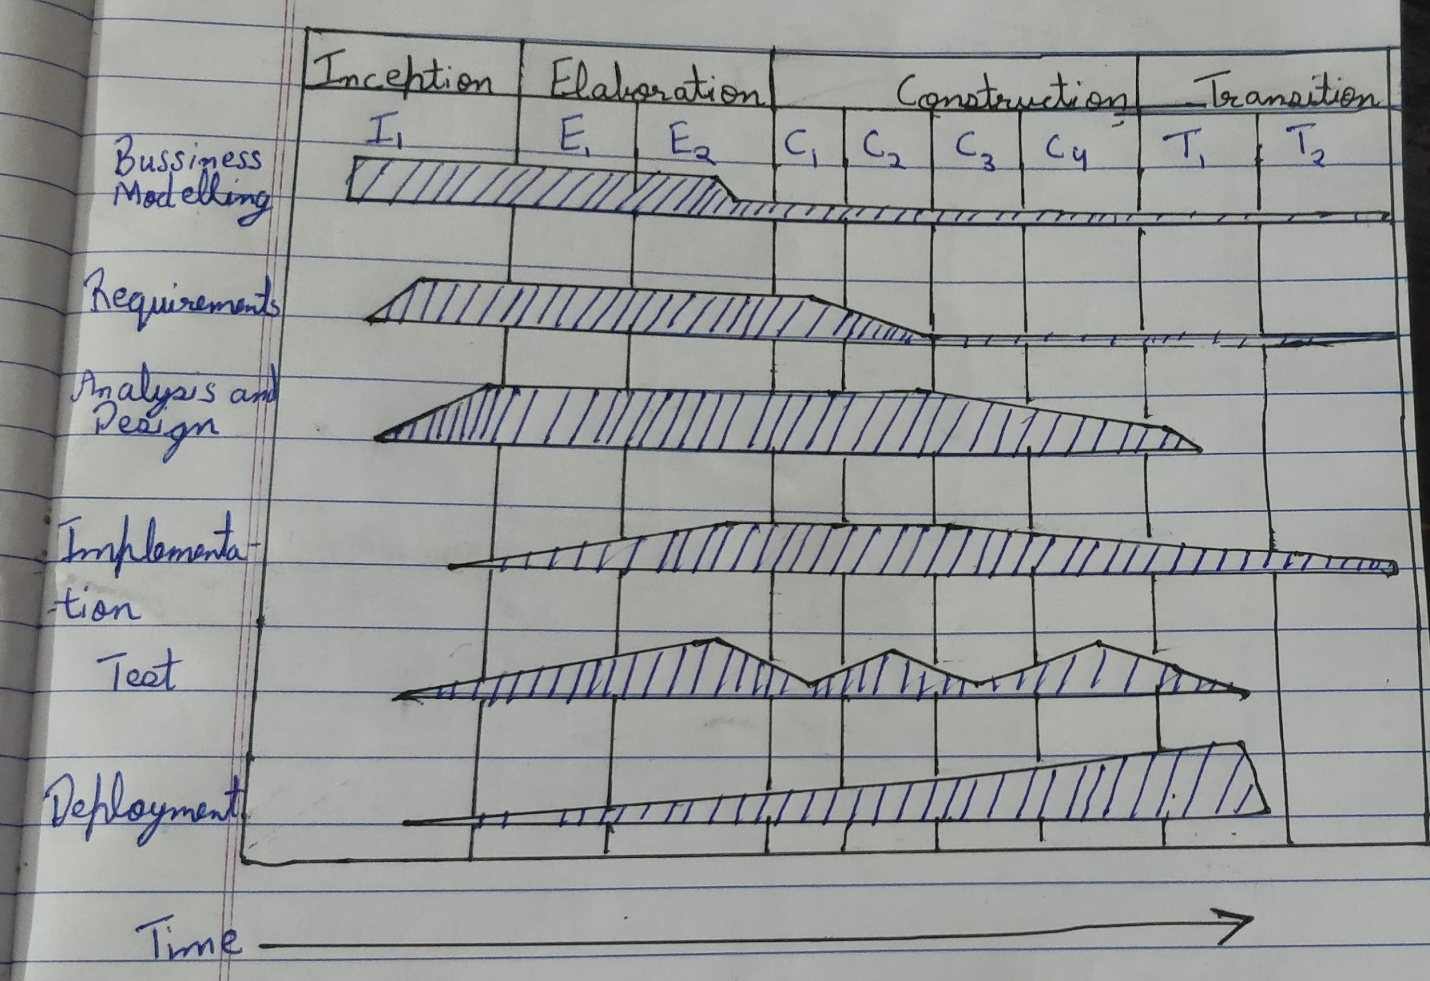 Inception Elaboration Construction Transition
I₁ E₁ E₂ C₁ C₂ C₃ C₄ T₁ T₂
Bussiness
Modelling
Requirements
Analysis and
Design
Implementa-
-tion
Test
Deployment
Time